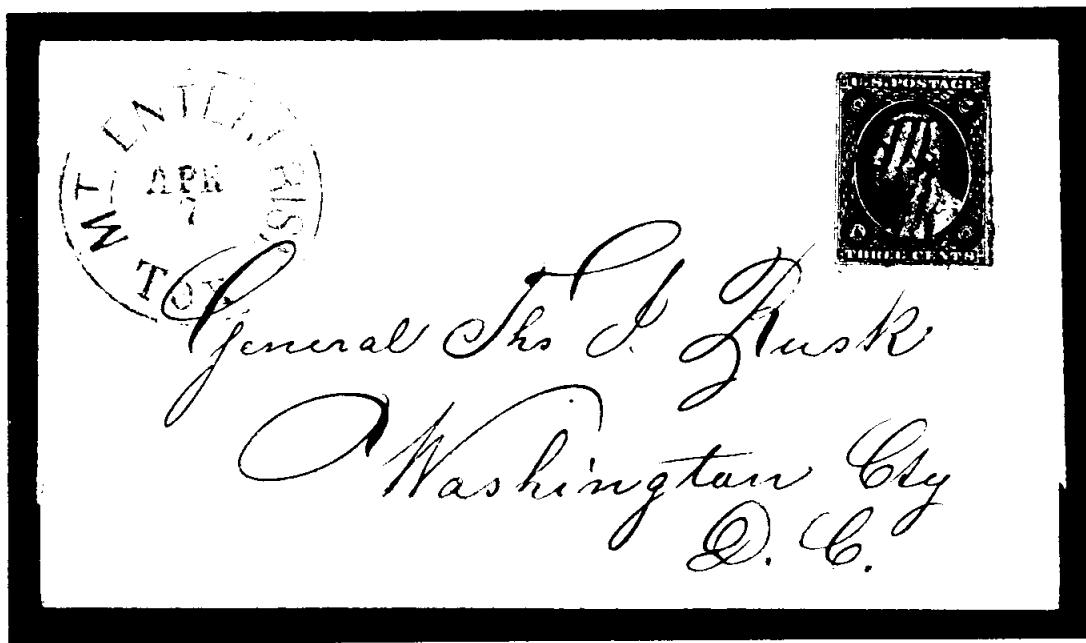 MT ENTERPRISE
APR
7
TEX
U.S.POSTAGE
THREE CENTS
General Ths J. Rusk
Washington Cty
D. C.